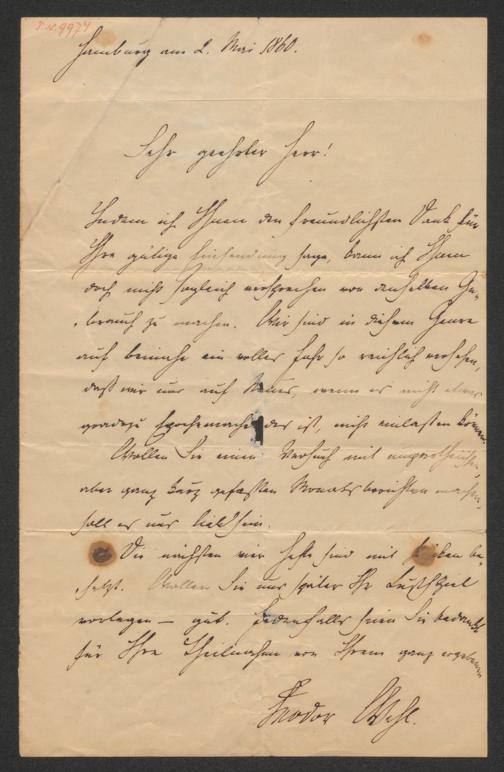 I.N. 9974
Hamburg am 2. Mai 1860.
Sehr geehrter Herr!
Indem ich Ihnen den freundlichsten Dank für
Ihre gütige Einsendung sage, kann ich Ihnen
doch nicht sogleich versprechen von denselben Ge-
brauch zu machen. Wir sind in diesem Genre
auf beinahe ein volles Jahr so reichlich versehen,
daß wir uns auf Neues, wenn es nicht etwas
geradezu Epochemachendes ist, nicht einlassen können.
Wollen Sie einen Versuch mit
aber ganz kurz gefaßten Monatsberichten machen,
soll es uns lieb sein.
Die nächsten vier Hefte sind mit be-
setzt. Wollen Sie uns später Ihr Lustspiel
vorlegen — gut. Jedenfalls seien Sie bedankt
für Ihre Theilnahme von Ihrem ganz ergebenen
Feodor Wehl.